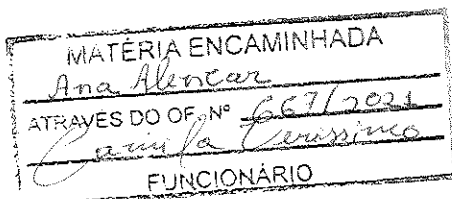 MATÉRIA ENCAMINHADA
Ana Alencar
ATRAVÉS DO OF. Nº 667/2021
Camila Verissimo
FUNCIONÁRIO